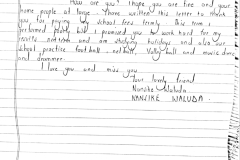 How are you? I hope you are fine and your
home people at large. I have written this letter to thank
you for paying my school fees termly. This term I
performed poorly but I promised you to work hard for my
results and am studying holidays and also our
school practice foot ball, net ball, Volley ball and music dance
and drammer.
I love you and miss you
Your lovely friend
Nanjike Waluda
NANJIKE WALUDA.